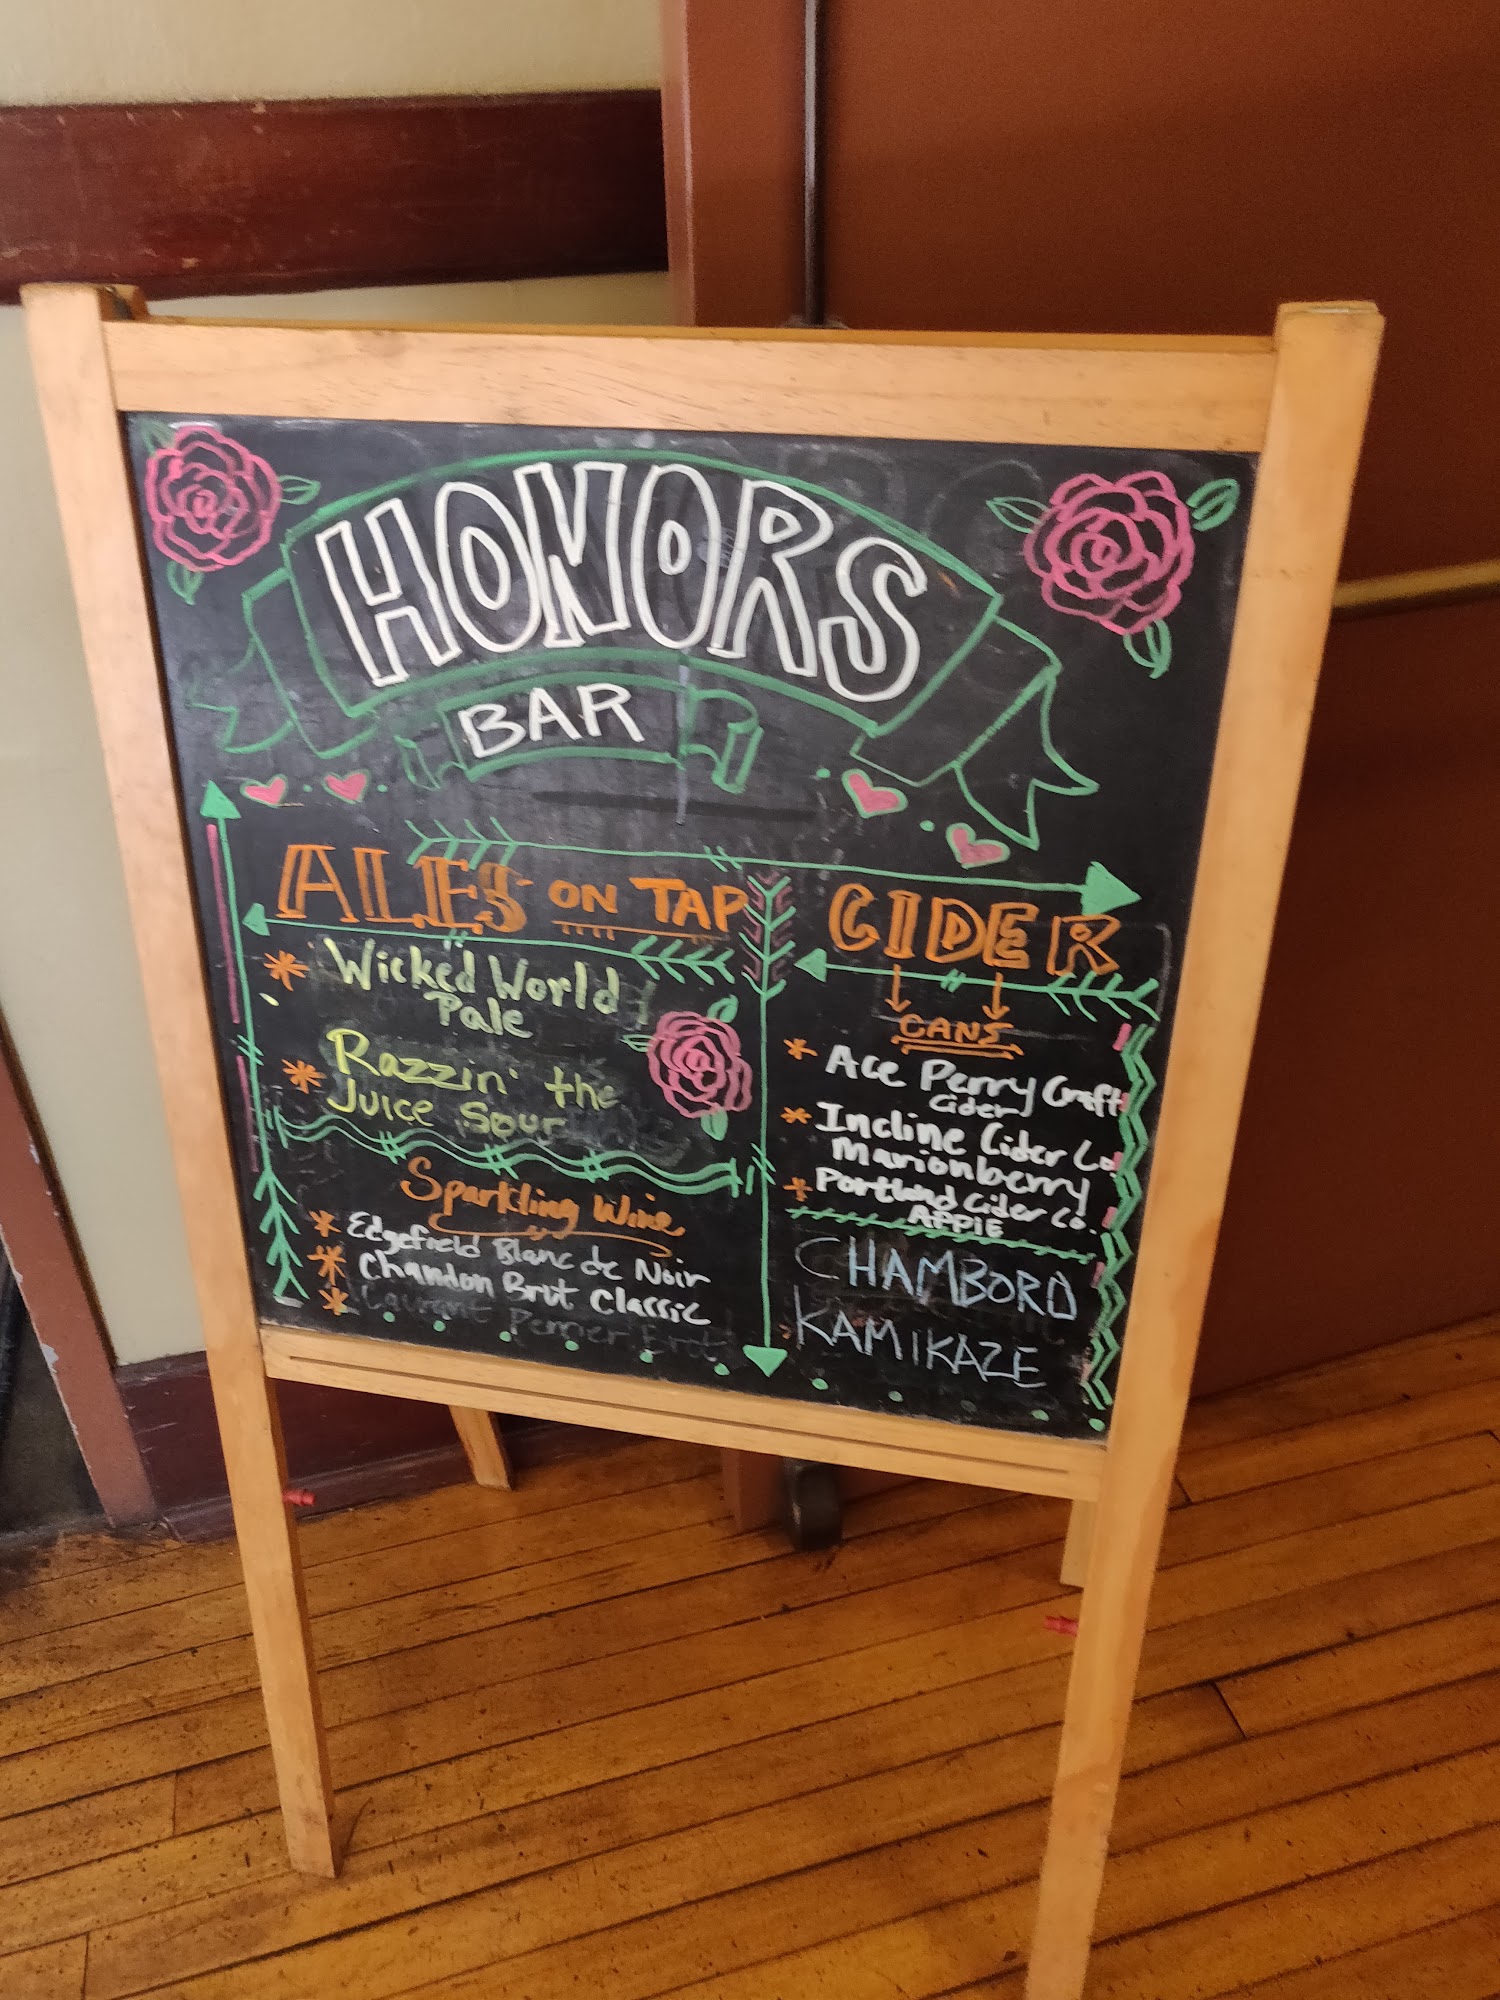 HONORS
BAR
ALES ON TAP
Wicked World
Pale
Razzin' the
Juice Sour
Sparkling Wine
Edgefield Blanc de Noir
Chandon Brut Classic
CIDER
CANS
Ace Perry Craft
Cider
Incline Cider Co
Marionberry
Portland Cider Co.
APPlE
CHAMBORD
KAMIKAZE